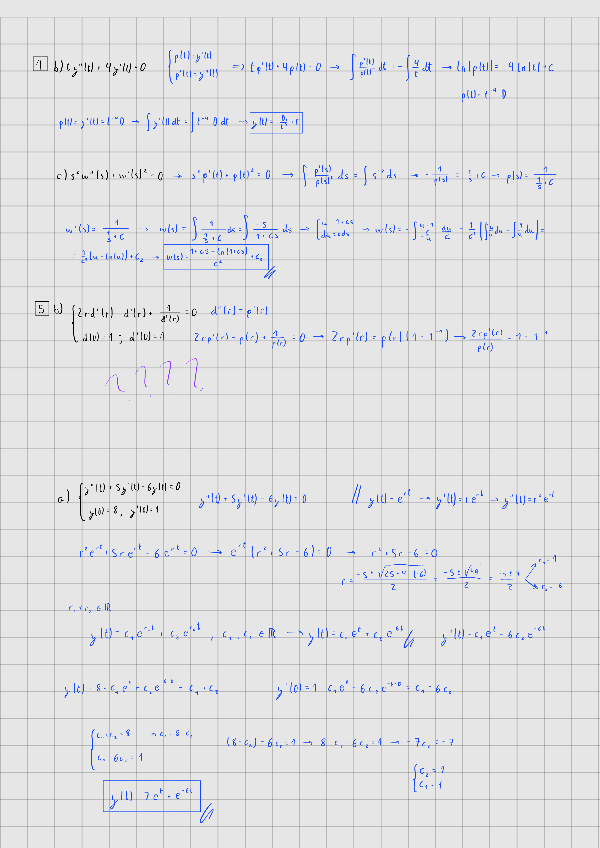 1 b) t y''(t) + 4 y'(t) = 0 { p(t) = y'(t) p'(t) = y''(t) ⇒ t p'(t) + 4 p(t) = 0 → ∫ p'(t)/p(t) dt = - ∫ 4/t dt → ln|p(t)| = 4 ln|t| + c
p(t) = t⁻⁴ D
p(t) = y'(t) = t⁻⁴ D → ∫ y'(t) dt = ∫ t⁻⁴ D dt → y(t) =
c) s² w''(s) + w'(s)² = 0 → s² p'(t) + p(t)² = 0 → ∫ p'(s)/p(s)² ds = ∫ s⁻² ds → - 1/p(s) = 1/s + C → p(s) = 1/(1/s + C)
w'(s) = 1/(1/s + C) → w(s) = ∫ 1/(1/s + C) ds = ∫ s/(1+cs) ds → [u = 1+cs du = c ds] → w(s) =
= 1/c² (u - ln(u)) + C₂ → w(s) = (1 + cs - ln(1+cs))/c² + C₂
5 b) { 2rd''(r) d'(r) + 1/d'(r) = 0 d''(r) = p'(r)
d(0) = 1 ; d'(0) = 1 2rp'(r) - p(r) + 1/p(r) = 0 → 2rp'(r) = p(r) (1 - 1⁻¹) → 2rp'(r)/p(r) = 1 - 1⁻¹
? ? ? ?
a) { y''(t) + 5y'(t) - 6y(t) = 0 y''(t) + 5y'(t) - 6y(t) = 0 // y(t) = e^rt → y'(t) = re^rt → y''(t) = r²e^rt
y(0) = 8, y'(0) = 1
r²e^rt + 5re^rt - 6e^rt = 0 → e^rt (r² + 5r - 6) = 0 → r² + 5r - 6 = 0
r = (-5 ± √(25 - 4 (-6)))/2 = (-5 ± √49)/2 = (-5 ± 7)/2 r₁ = 1 r₂ = -6
r₁ ≠ r₂ ∈ ℝ
y(t) = c₁e^r₁t + c₂e^r₂t , c₁, c₂ ∈ ℝ → y(t) = c₁e^t + c₂e^-6t y'(t) = c₁e^t - 6c₂e^-6t
y(t) = 8 = c₁e⁰ + c₂e^-6·0 = c₁ + c₂ y'(0) = 1 = c₁e⁰ - 6c₂e^-6·0 = c₁ - 6c₂
{ c₁ + c₂ = 8 → c₁ = 8 - c₂ (8 - c₂) - 6c₂ = 1 → 8 - c₂ - 6c₂ = 1 → -7c₂ = -7
c₁ - 6c₂ = 1
{ c₂ = 1
c₁ = 7
y(t) = 7e^t + e^-6t